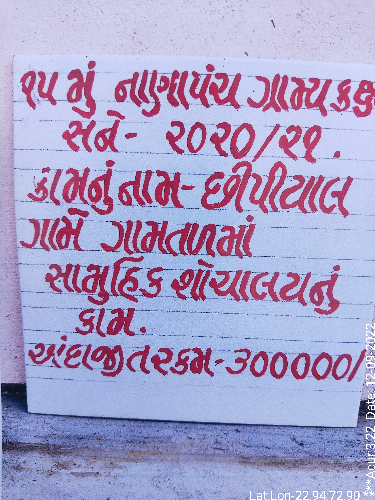 ૧૫ મું નાણાપંચ ગ્રામ્ય કક્ષ
સને - ૨૦૨૦/૨૧.
કામનું નામ - છીપીયાલ
ગામે ગામતળમાં
સામુહિક શૌચાલયનું
કામ.
અંદાજીત રકમ - ૩૦૦૦૦૦/
Lat Lon-22.94:72.90
Date :12-09-2022